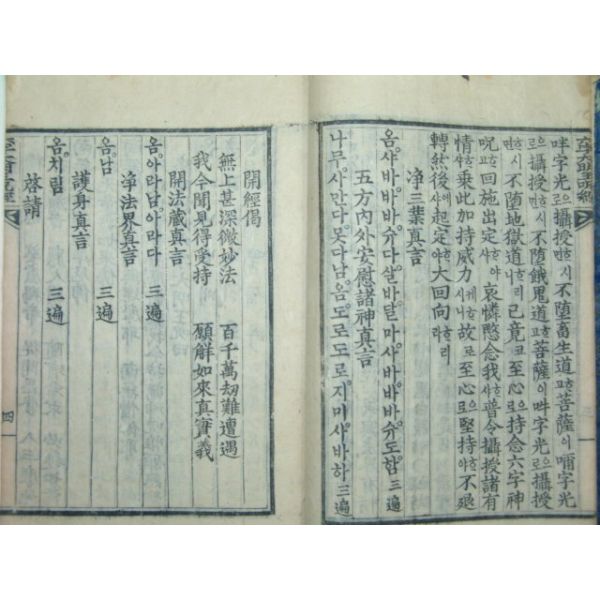 吽字光로攝授하시면不墮畜生道하고菩薩이 字光
로攝授하시면不墮餓鬼道하고菩薩이吽字光로攝授
하시면不墮地獄道니라已竟코至心으로持念六字神
呪하야回施出定하사哀憐愍念我하사普令攝授諸有
情하사乘此加持威力 故로至心으로堅持하야不退
轉然後에起定하야大回向하리라
淨三業真言
옴사바바바슈다살바달마사바바바슈도함 三遍
五方內外安慰諸神真言
나무사만다못다남옴도로도로지미사바하 三遍
開經偈
無上甚深微妙法 百千萬劫難遭遇
我今聞見得受持 願解如來真實義
開法藏真言
옴아라남아라다 三遍
淨法界真言
옴남 三遍
護身真言
옴치림 三遍
啓請
四